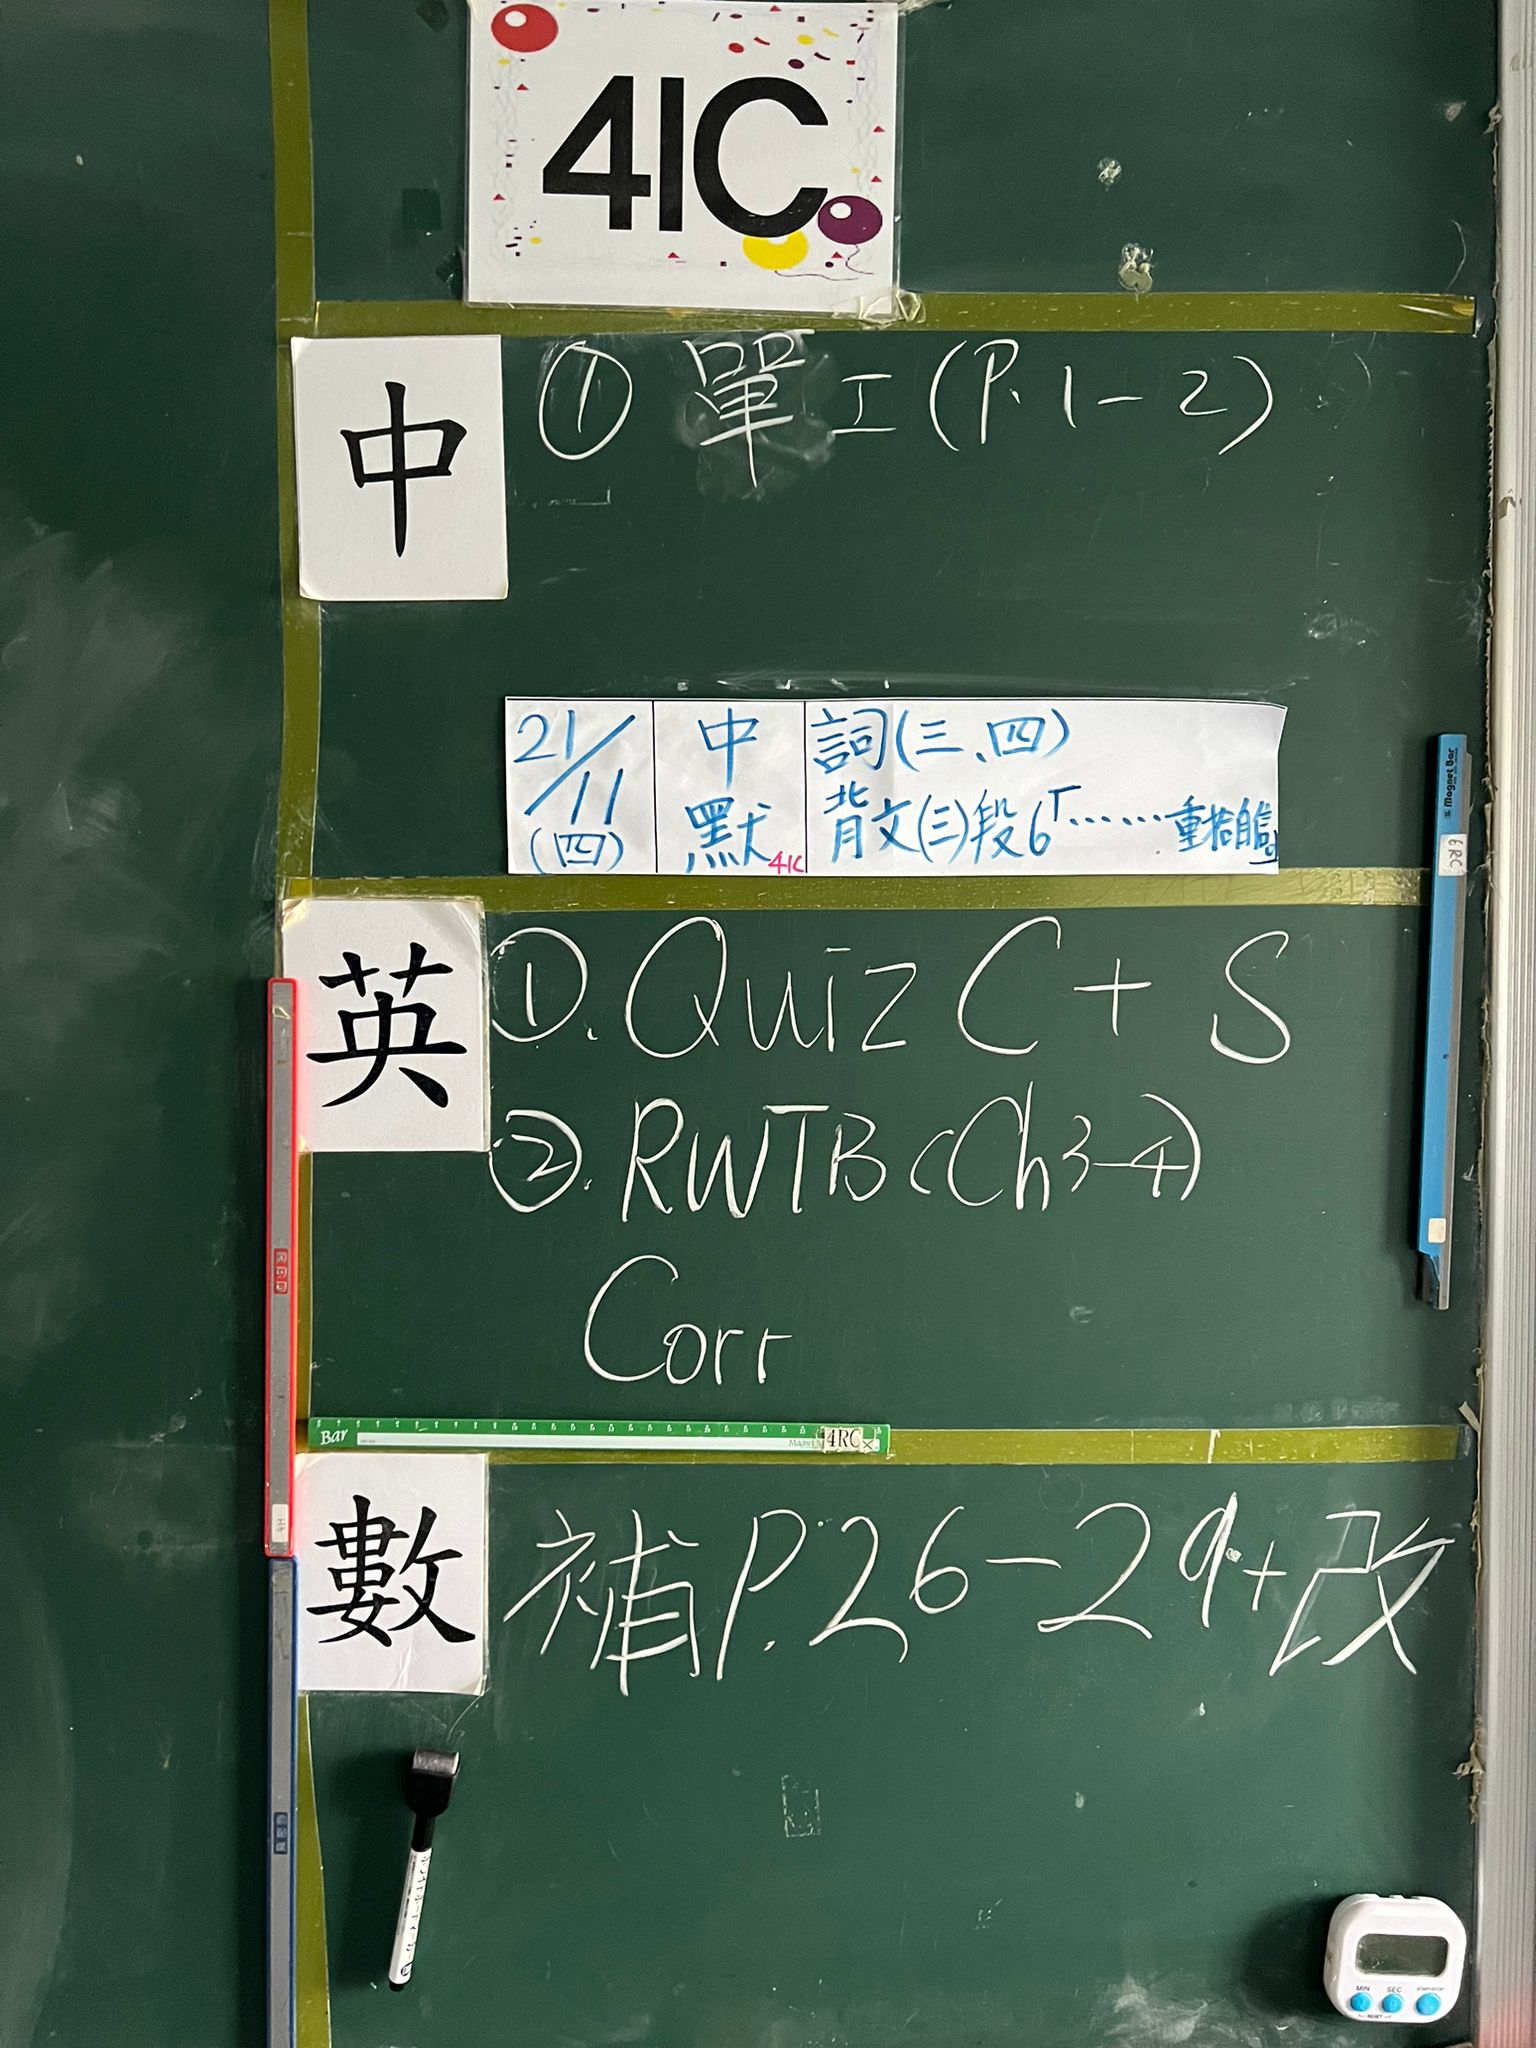 41C
中
① 單工(P.1-2)
21/11
(四)
中
默
41C
詞(三、四)
背文(三)段6「……重拾自信。」
英
①. Quiz C + S
②. RWTB (Ch3-4)
Corr
Magnet Bar
6RC
Bar
4RC
數
補P.26-29+改
MIN
SEC
START/STOP
RESET